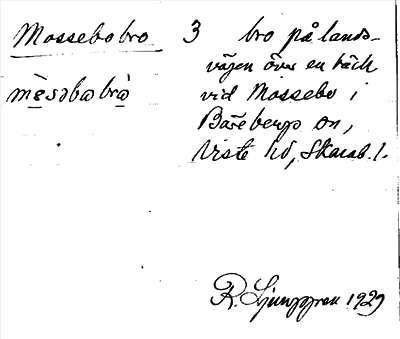 Mossebobro 3 bro på lands-
vägen över en bäck
mèsɔbɷbrò vid Mossebo i
Bärebergs sn,
Viste hd, Skarab. l.
R. Ljunggren 1929